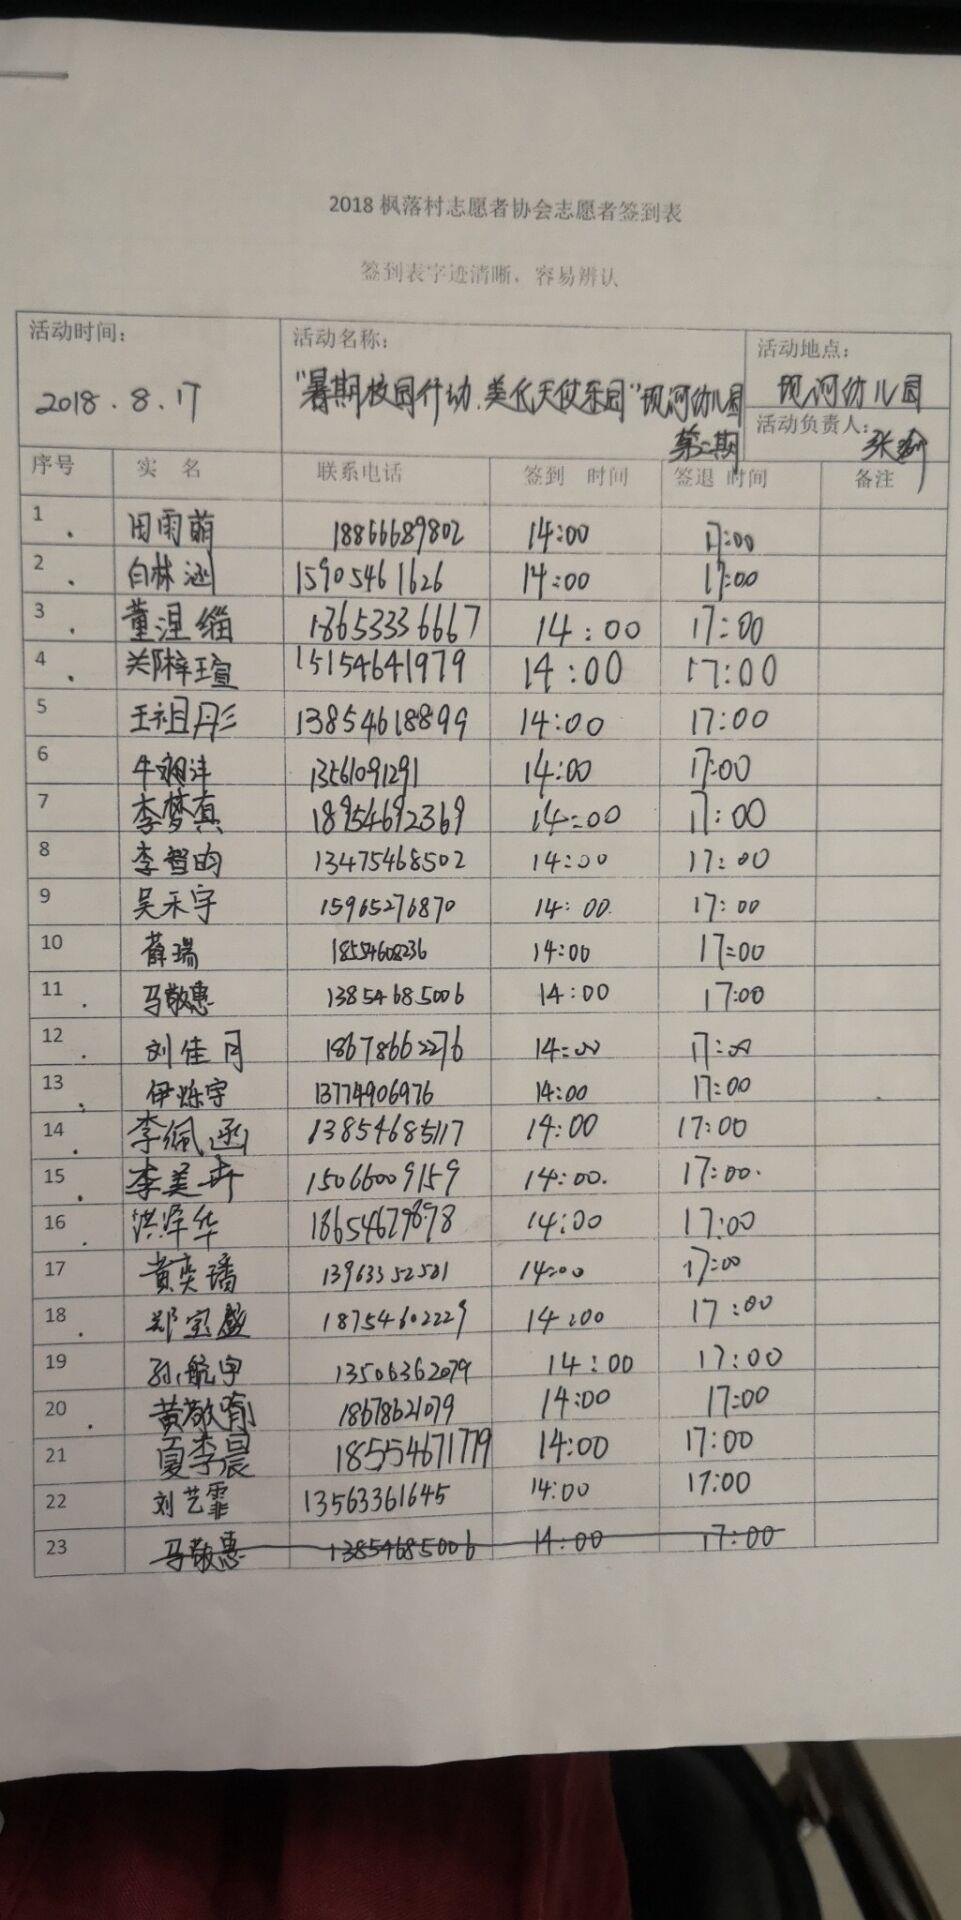 2018 枫落村志愿者协会志愿者签到表
签到表字迹清晰，容易辨认
活动时间： 2018.8.17
活动名称： "暑期校园行动.美化天使乐园"现河幼儿园 第二期
活动地点： 现河幼儿园
活动负责人： 张
序号 实 名 联系电话 签到 时间 签退 时间 备注
1 田雨萌 18866689802 14:00 17:00
2 白林涵 15905461626 14:00 17:00
3 董涅缁 18653336667 14:00 17:00
4 郑梓瑄 15154641979 14:00 17:00
5 王祖彤 13854618899 14:00 17:00
6 牛翊沣 13561091291 14:00 17:00
7 李梦真 18954692369 14:00 17:00
8 李智昀 13475468502 14:00 17:00
9 吴禾宇 15965276870 14:00 17:00
10 薛瑞 18554608236 14:00 17:00
11 马敬惠 13854685006 14:00 17:00
12 刘佳月 18678662276 14:00 17:00
13 伊烁宇 13774906976 14:00 17:00
14 李佩函 13854685117 14:00 17:00
15 李美卉 15066009159 14:00. 17:00.
16 洪泽华 18654679898 14:00 17:00
17 黄奕璠 13963352521 14:00 17:00
18 郑宝盛 18754602229 14:00 17:00
19 孙航宇 13506362079 14:00 17:00
20 黄敬喻 18678621079 14:00 17:00
21 夏李晨 18554671779 14:00 17:00
22 刘艺霏 13563361645 14:00 17:00
23 马敬惠 13854685006 14:00 17:00